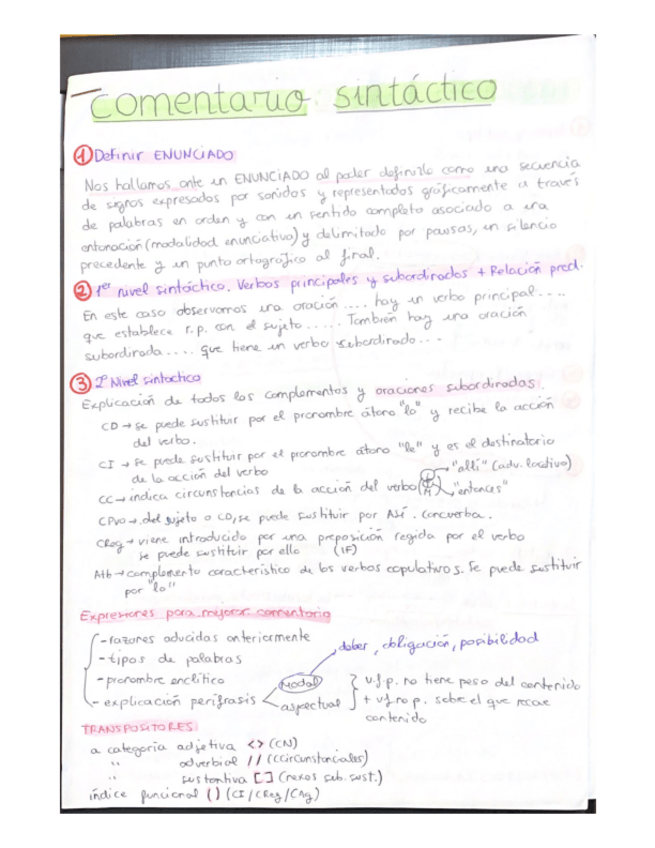 Comentario sintáctico
1 Definir ENUNCIADO
Nos hallamos ante un ENUNCIADO al poder definirlo como una secuencia
de signos expresados por sonidos y representados gráficamente a través
de palabras en orden y con un sentido completo asociado a una
entonación (modalidad enunciativa) y delimitado por pausas, un silencio
precedente y un punto ortográfico al final.
2 1er nivel sintáctico. Verbos principales y subordinados + Relación pred.
En este caso observamos una oración .... hay un verbo principal ....
que establece r.p. con el sujeto ..... También hay una oración
subordinada .... que tiene un verbo subordinado ...
3 2º Nivel sintactico
Explicación de todos los complementos y oraciones subordinadas.
CD → se puede sustituir por el pronombre átono "lo" y recibe la acción
del verbo.
CI → se puede sustituir por el pronombre átono "le" y es el destinatario
de la acción del verbo
"allí" (adv. locativo)
CC → indica circunstancias de la acción del verbo "entonces"
CPvo → del sujeto o CD, se puede sustituir por Así. Concuerda.
CReg → viene introducido por una preposición regida por el verbo
se puede sustituir por ello (IF)
Atb → complemento característico de los verbos copulativos. Se puede sustituir
por "lo"
Expresiones para mejorar comentario
- razones aducidas anteriormente
- tipos de palabras
- pronombre enclítico
- explicación perífrasis
modal
deber, obligación, posibilidad
aspectual
v.f.p. no tiene peso del contenido
+ v.f no p. sobre el que recae
contenido
TRANSPOSITORES
a categoría adjetiva <> (CN)
" adverbial // (CCircunstanciales)
" sustantiva [ ] (nexos sub. sust.)
índice funcional ( ) (CI/CReg/CAg)